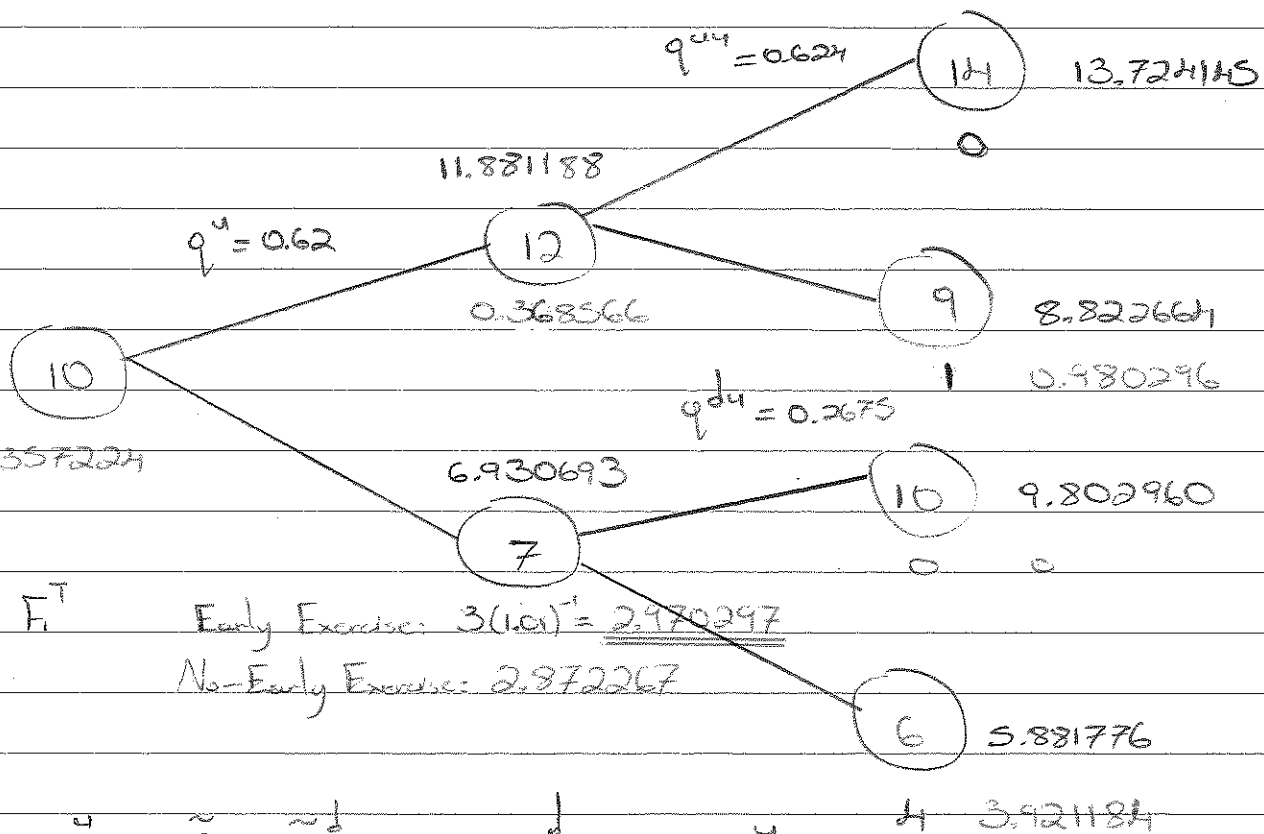 q^uu = 0.624
14 13.724145
0
11.881188
q^u = 0.62
12
9 8.822664
0.368566
10
1 0.980296
q^du = 0.2675
357224
6.930693
10 9.802960
7
0 0
Early Exercise: 3(1.01)^-1 = 2.970297
No-Early Exercise: 2.872267
6 5.881776
4 3.921184